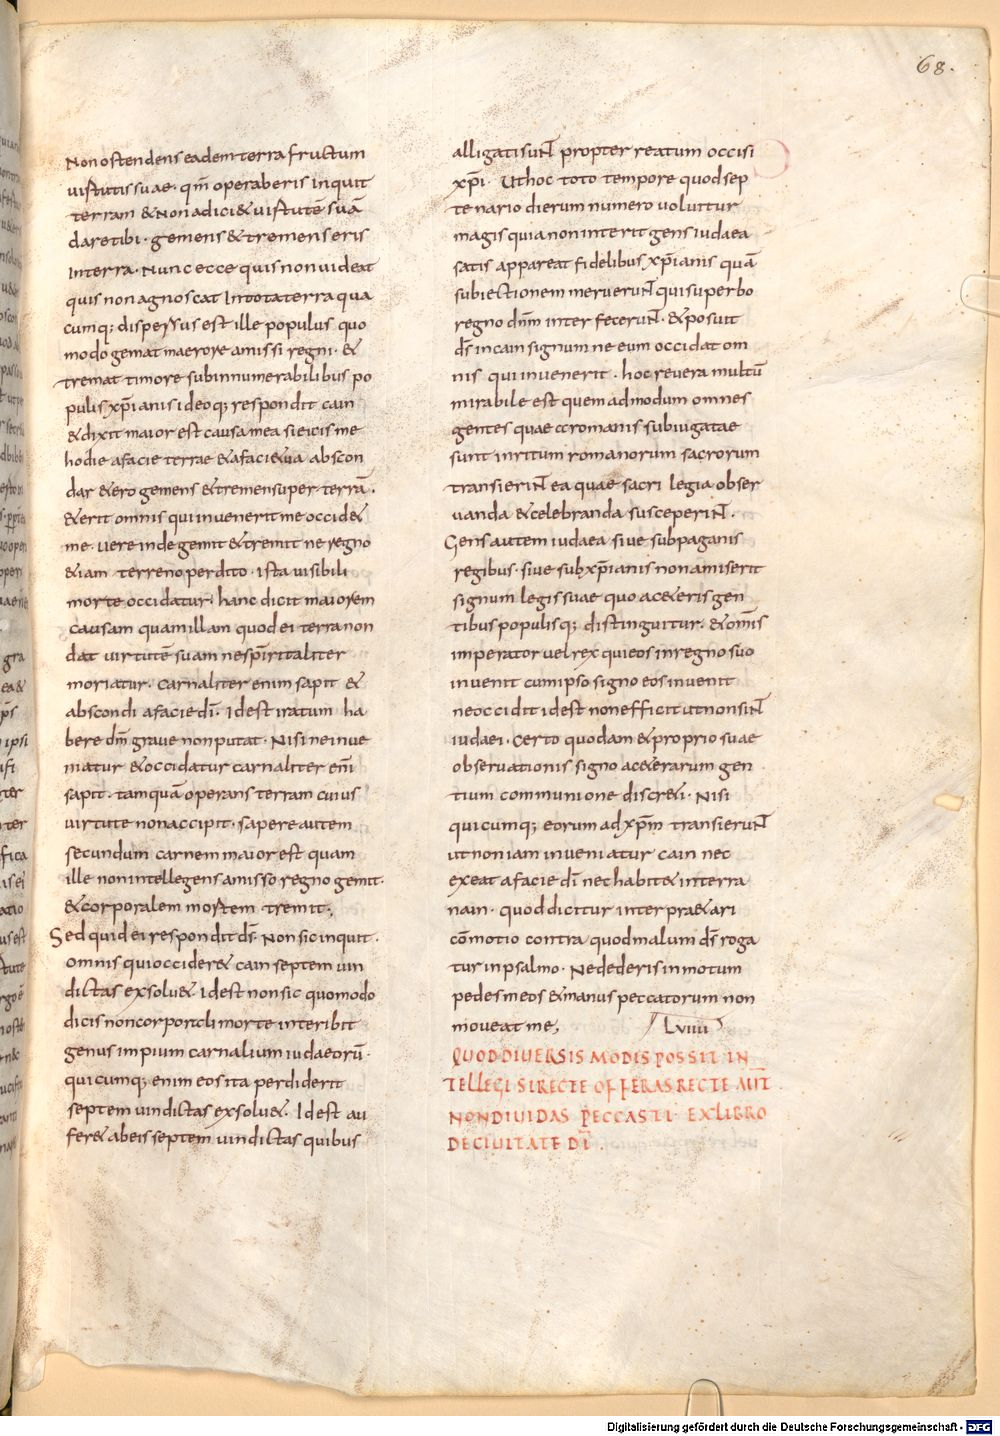 68.
Non ostendens eadem terra fructum
uirtutis suae. qm̄ operaberis inquit
terram & non adici& uirtutē suā
dare tibi. gemens & tremens eris
in terra. Nunc ecce quis non uideat
quis non agnoscat in tota terra qua
cumq; dispersus est ille populus. quo
modo gemat maerore amissi regni. &
tremat timore sub innumerabilibus po
pulis xp̄ianis ideoq; respondit cain
& dixit maior est causa mea si eicis me
hodie a facie terrae & a faci& ua abscon
dar & ero gemens & tremens super terrā.
& erit omnis qui inuenerit me occid&
me. uere inde gemit & tremit ne regno
& iam terreno perdito. ista uisibili
morte occidatur. hanc dicit maiorem
causam quam illam quod ei terra non
dat uirtutē suam ne sp̄iritaliter
moriatur. carnaliter enim sapit &
abscondi a facie dī. idest iratum ha
bere dm̄ graue non putat. Nisi ne inue
niatur & occidatur carnaliter enī
sapit. tamquā operans terram cuius
uirtute non accipit. sapere autem
secundum carnem maior est quam
ille non intellegens amisso regno gemit.
& corporalem mortem tremit;
Sed quid ei respondit ds̄. Non sic inquit.
omnis qui occider& cain septem uin
dictas exsolu&. idest non sic quomodo
dicis non corporali morte interibit
genus impium carnalium iudaeorū.
quicumq; enim eos ita perdiderit
septem uindictas exsolu&. idest au
fer& ab eis septem uindictas quibus
alligati sunt propter reatum occisi
xp̄i. Ut hoc toto tempore quod sep
tenario dierum numero uoluitur
magis quia non interit gens iudaea
satis appareat fidelibus xp̄ianis quā
subiectionem meruerunt qui superbo
regno dn̄m interfecerunt. & posuit
ds̄ in cain signum ne eum occidat om
nis qui inuenerit. hoc reuera multū
mirabile est quem ad modum omnes
gentes quae a romanis subiugatae
sunt in ritum romanorum sacrorum
transierint ea quae sacrilegia obser
uanda & celebranda susceperint.
Gens autem iudaea siue sub paganis
regibus. siue sub xp̄ianis non amiserit
signum legis suae quo a c&eris gen
tibus populisq; distinguitur. & om̄is
imperator uel rex qui eos in regno suo
inuenit cum ipso signo eos inuenit
ne occidit idest non efficit ut non sint
iudaei. certo quodam & proprio suae
obseruationis signo a c&erarum gen
tium communione discr&i. Nisi
quicumq; eorum ad xp̄m transierunt
ut non iam inueniatur cain nec
exeat a facie dī nec habit& in terra
nain. quod dicitur interpra&ari
cōmotio contra quod malum ds̄ roga
tur in psalmo. Ne dederis in motum
pedes meos & manus peccatorum non
moueat me; Lviiii
QUOD DIUERSIS MODIS POSSIT IN
TELLEGI SI RECTE OFFERAS RECTE AUT
NON DIUIDAS PECCASTI. EX LIBRO
DE CIUITATE DĪ.
Digitalisierung gefördert durch die Deutsche Forschungsgemeinschaft - DFG